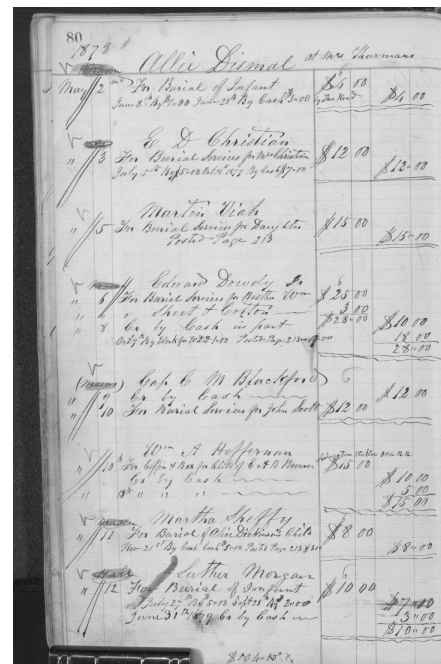 80
1878
Allie Dismal at Mrs Thurmans
May 2 For Burial of Infant $4 00
June 8th By $1=00 June 28th By Cash $3=00 $4 00
E. D. Christian
" 3 For Burial Services for Mrs Christian $12 00
July 5th By $5=00 1879 By Cash $7=00 $12=00
Martin Viah
" 5 For Burial Services for Daughter $15 00
Posted Page 213 $15=00
Edward Dowdy
" 6 For Burial Services for Bertha $25 00
" " " Sheet & Cotton 3 00
$28=00
" 8 Cr by Cash in part $10 00
Oct 7th By Work for Posted Page 213 18 00
28=00
Cap. C M Blackford
" " Cr by Cash $12 00
" 10 For Burial Services for John Scott $12 00
Wm A Heffernan
" 10 For Coffin & Box for Child of C. A. B. $15 00
" Cr by Cash $10 00
" 18th " " " 5 00
$15 00
Martha Sheffy
" 11 For Burial of Alice Dickinsons Child $8 00
Nov 21st By Cash $5=00 Posted Page 213 $8=00
Luther Morgan
" 12 For Burial of Infant $10 00
July 27th By $5=00 Sept 28th By $2=00 $7=00
June 31st 1879 Cr by Cash $3=00
$10=00